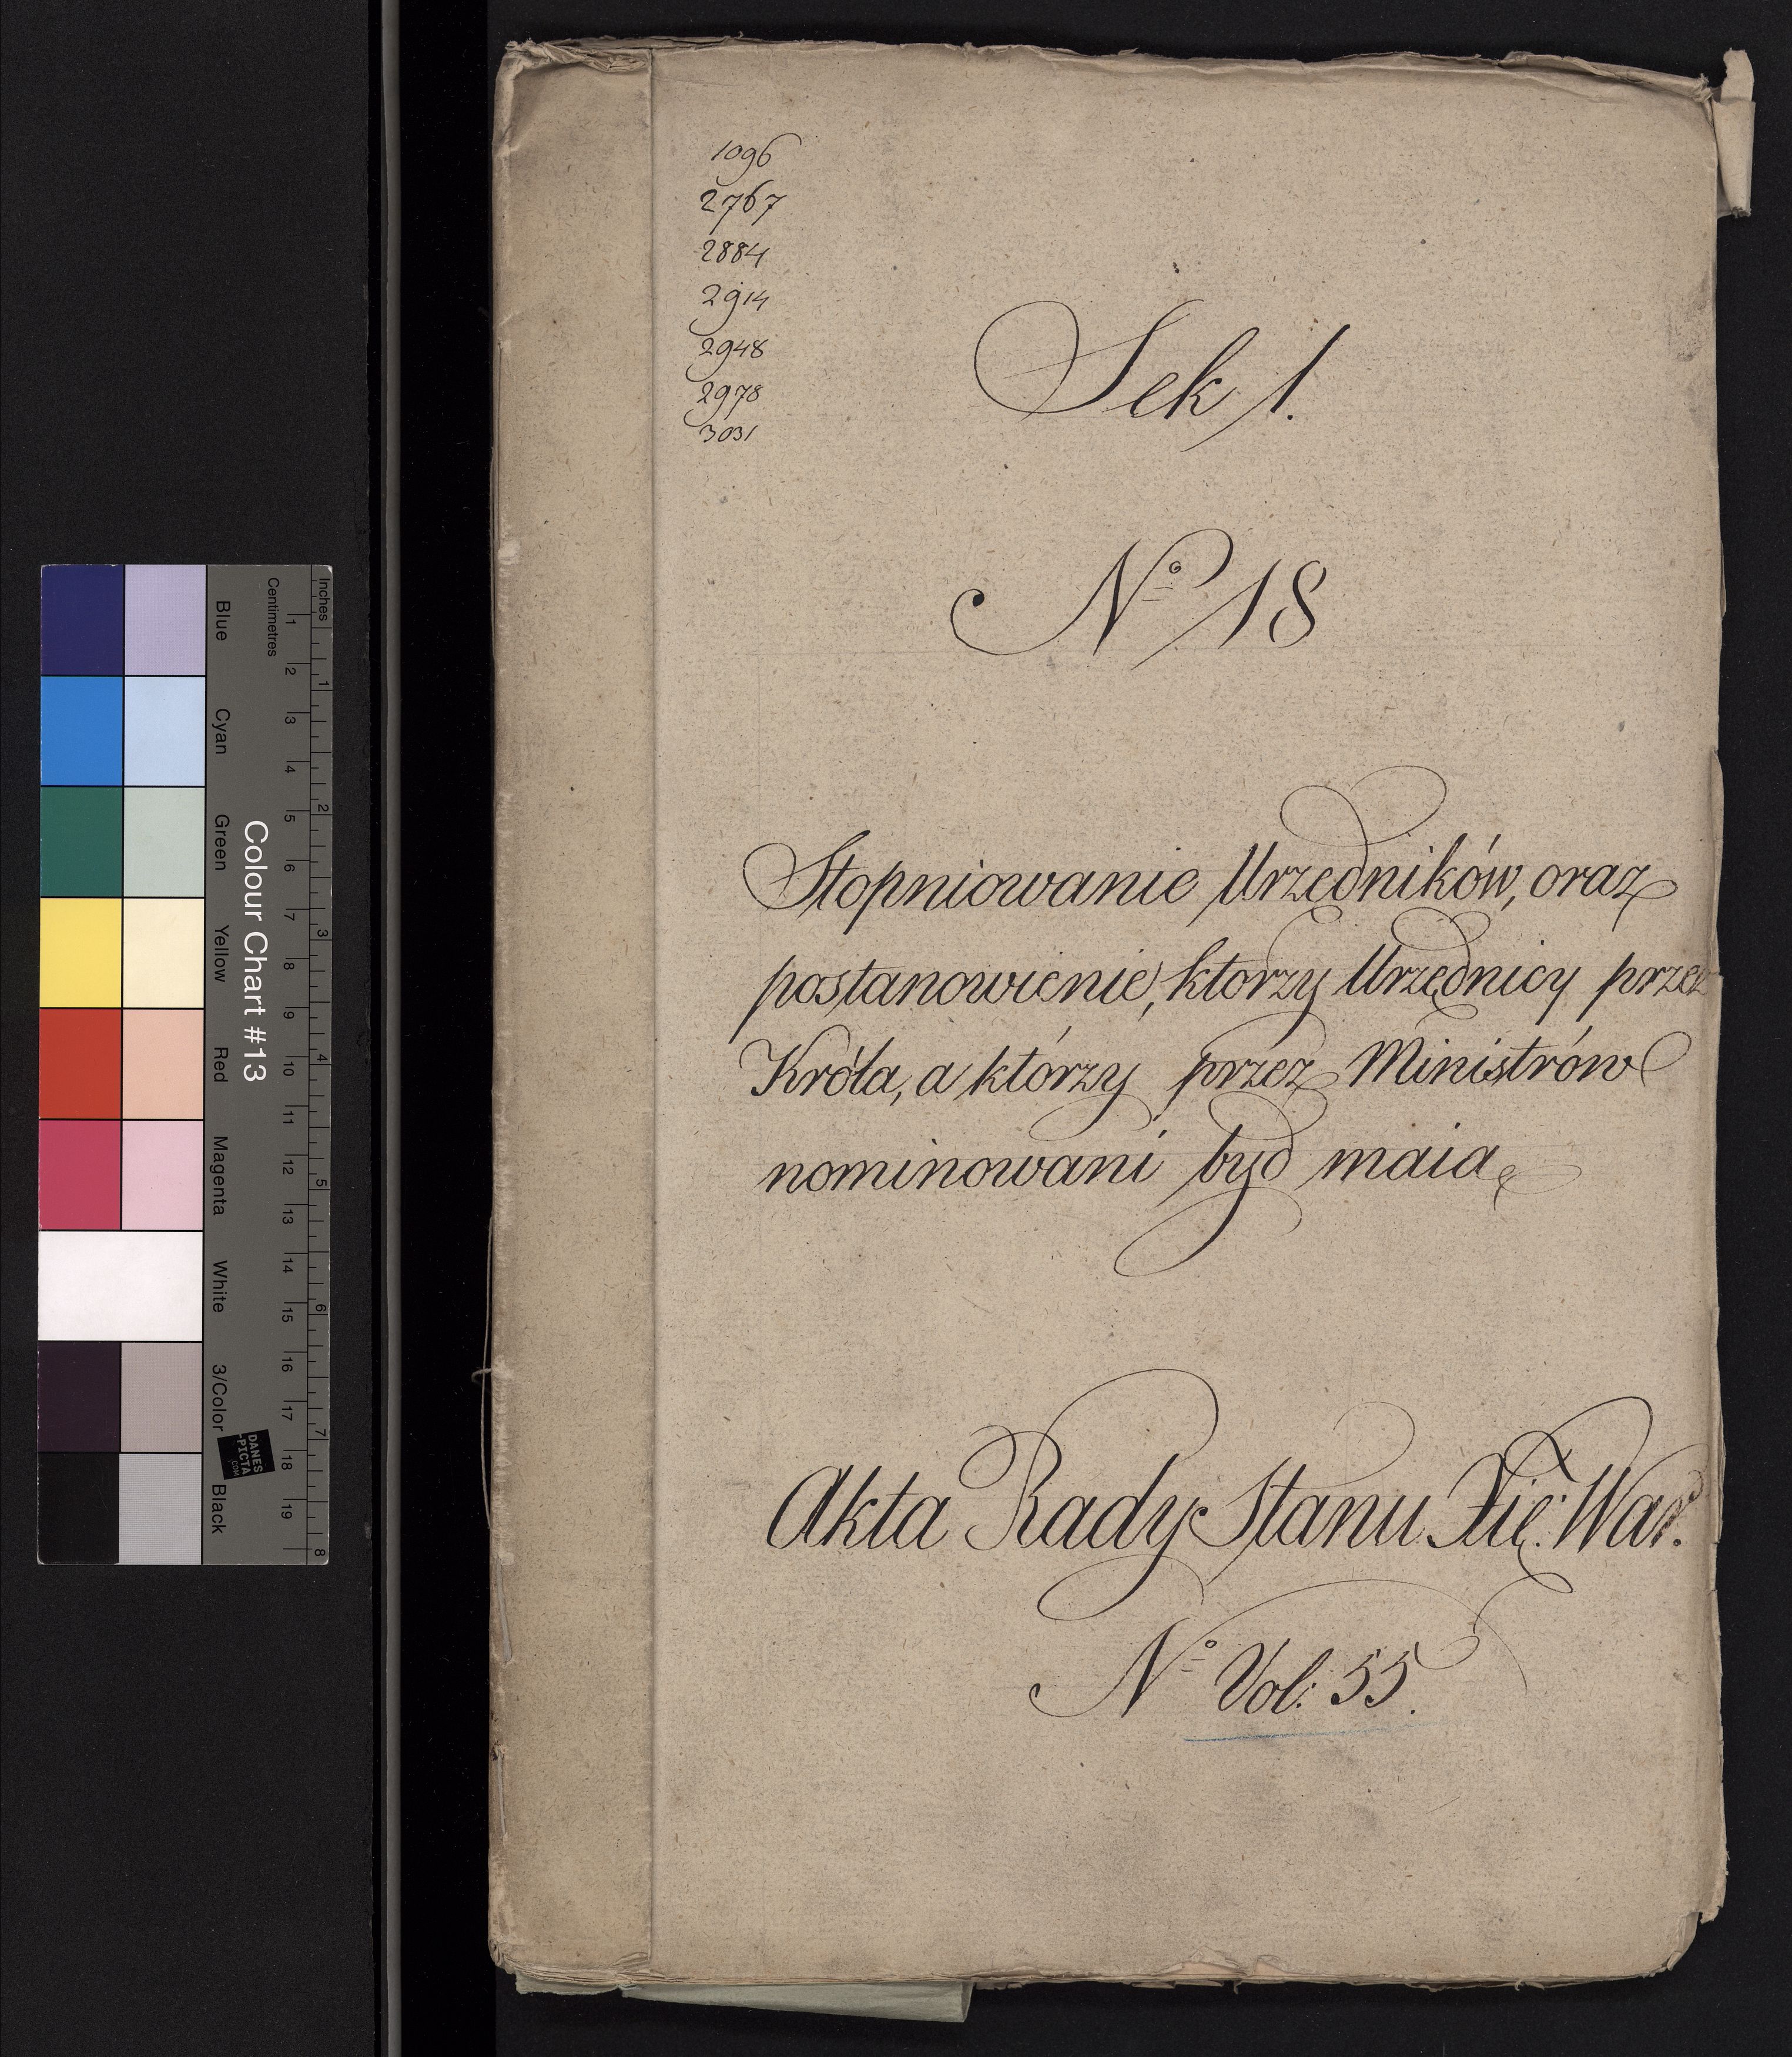 1096
2767
2884
2914
2948
2978
3031
Sek 1.
Nº 18
Stopniowanie Urzędników, oraz
postanowienie, ktorzy Urzędnicy przez
Króla, a którzy przez Ministrów
nominowani byd maią
Akta Rady Stanu Xię: War.
Nº Vol: 55.
Inches
Centimetres
1 2 3 4 5 6 7 8 9 10 11 12 13 14 15 16 17 18 19
1 2 3 4 5 6 7 8
Colour Chart #13
Blue Cyan Green Yellow Red Magenta White 3/Color Black
DANES
-PICTA
.COM